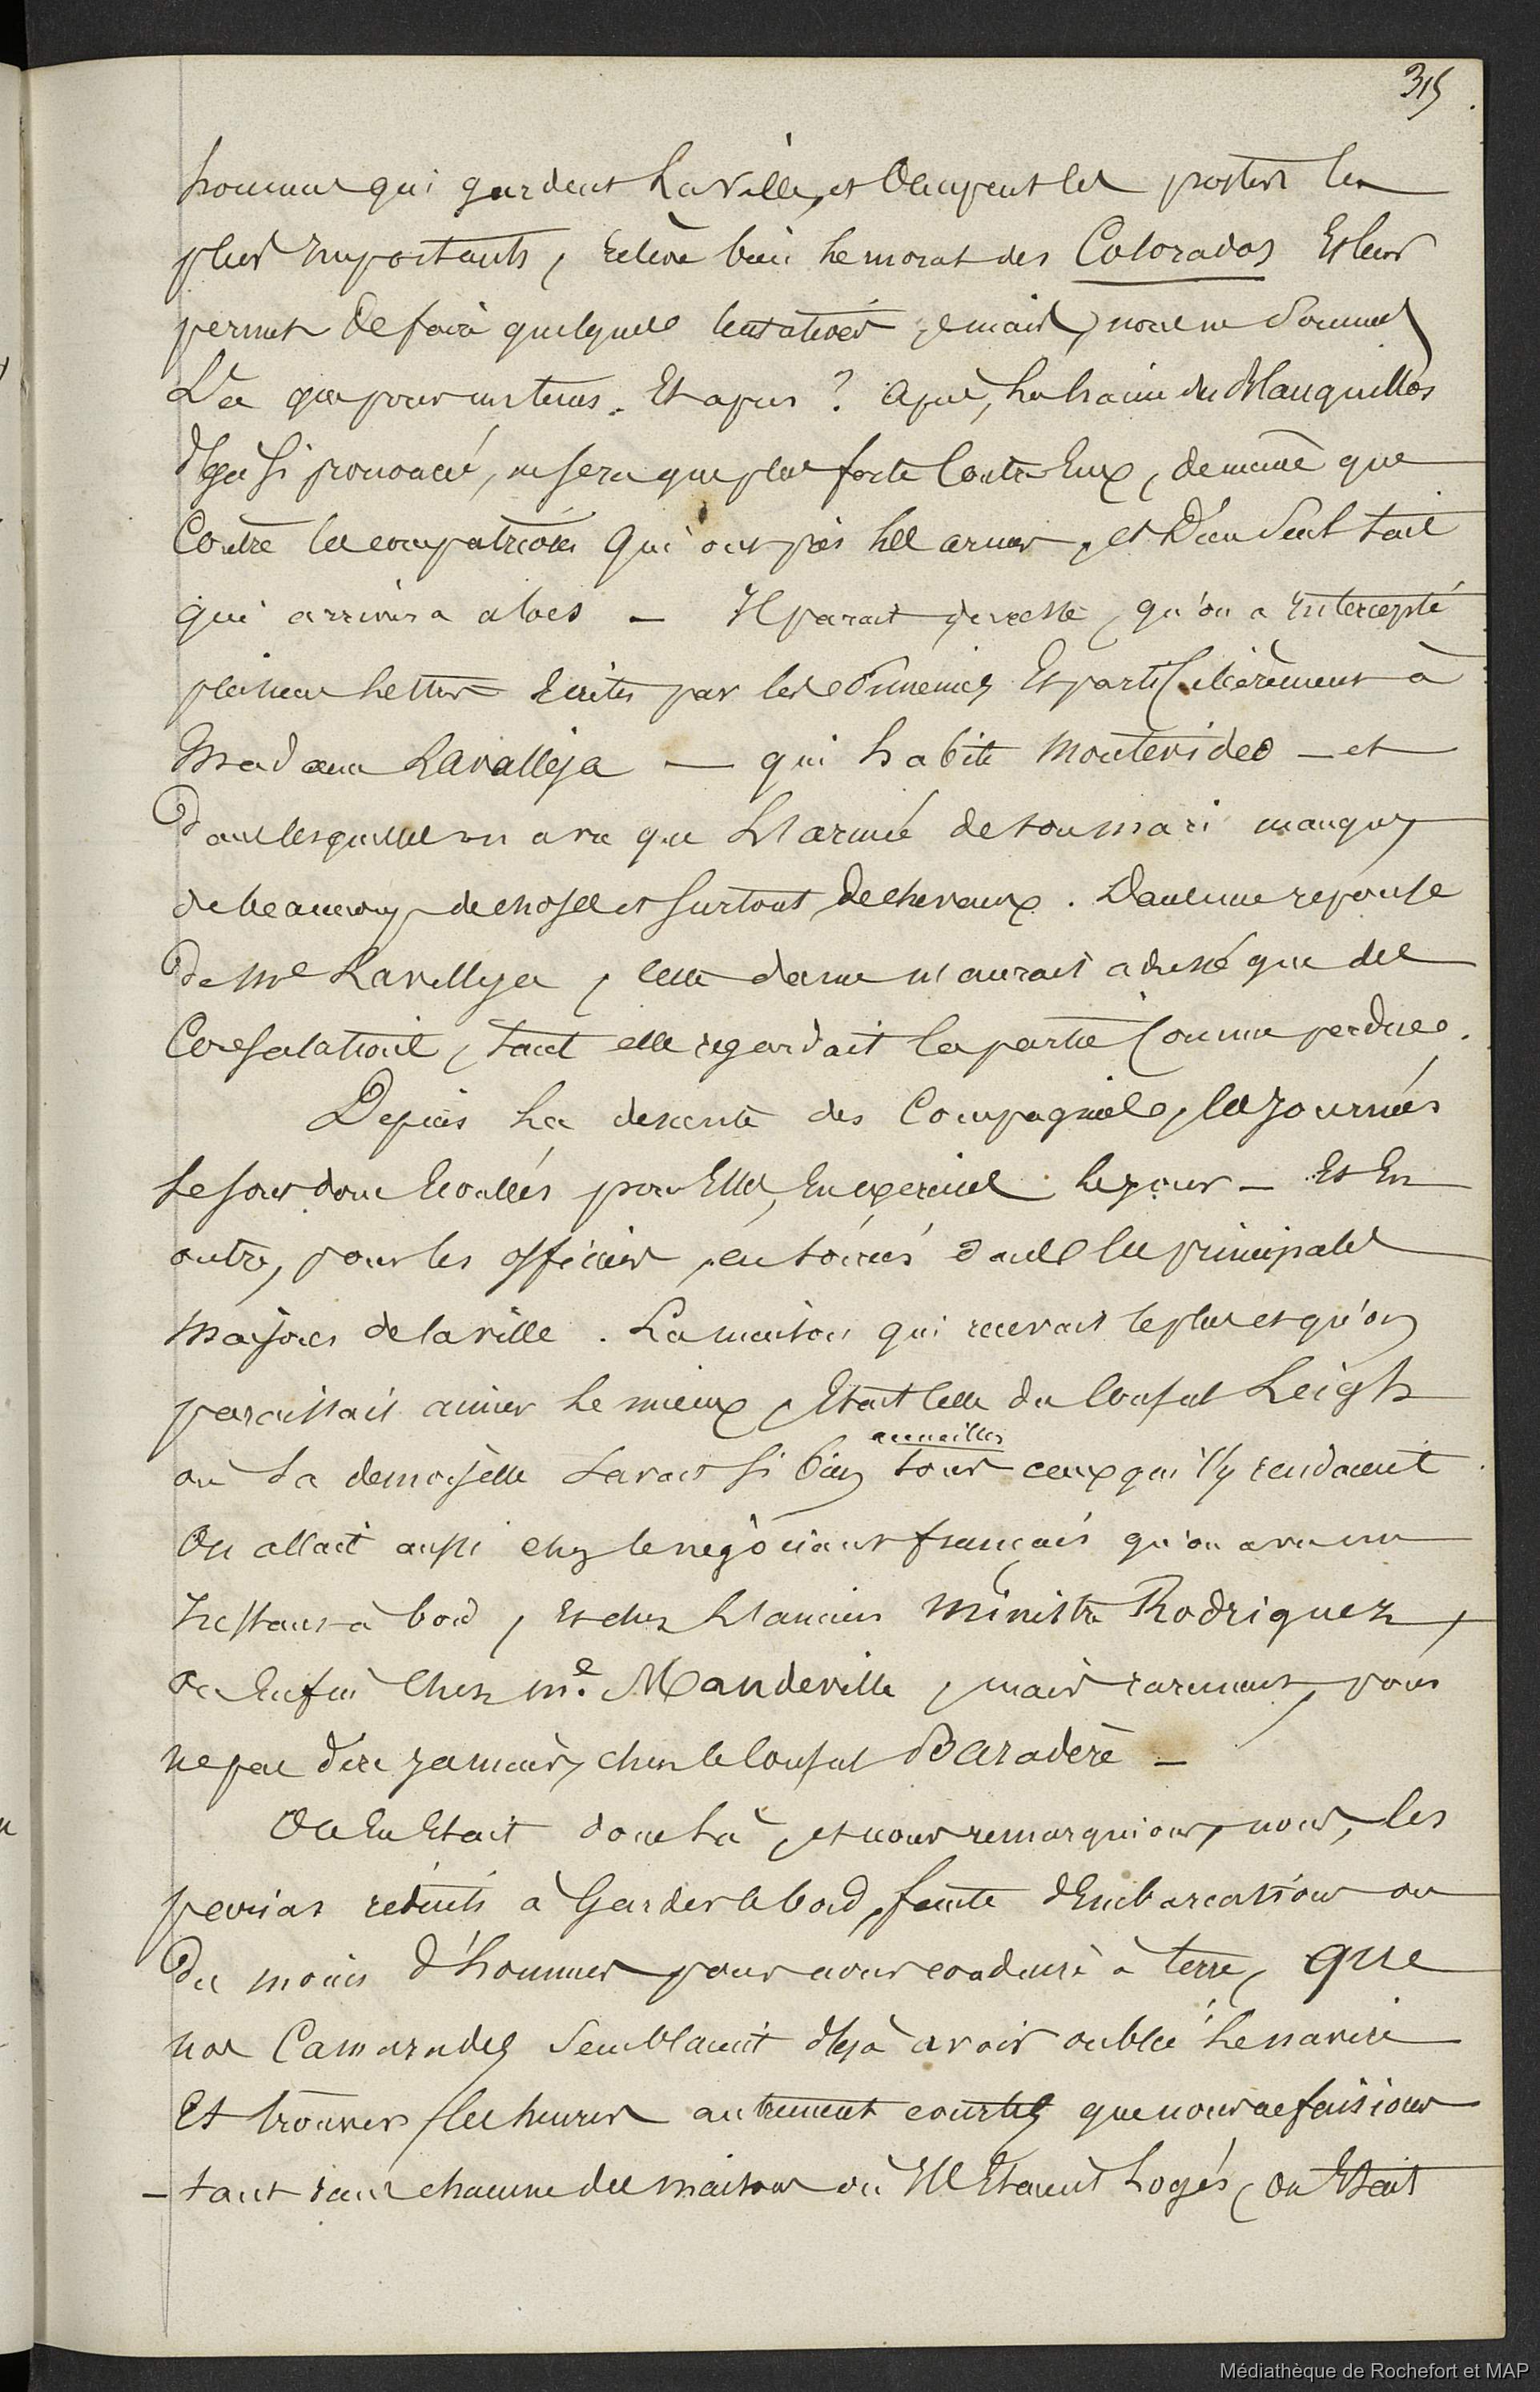 315
hommes qui gardent la ville, et occupent les postes les
plus importants, relève bien le moral des Colorados Et leur
permet de faire quelques tentatives, mais, nous ne sommes
Là que pour un tems. Et après ? après, la haine des Blanquillos
déjà si prononcée, ne sera que plus forte contre Eux, de même que
Contre les compatriotes qui ont pris les armes, et Dieu seul sait
qui arrivera alors — Il parait du reste, qu'on a intercepté
plusieurs lettres Ecrites par les Ennemies Et particulièrement à
Madame Lavalleja — qui habite Montevideo — et
Dans lesquelles on a vu que L'armée de son mari manque
de beaucoup de choses et surtout de chevaux. Dans une reponse
De Me Lavalleja, cette dame n'aurait adressé que des
Consolations, tant elle regardait la partie Comme perdue.
Depuis La descente des Compagnies, les journées
se sont donc Ecoulées pour Elles, En exercices le jour — Et En
outre, pour les officiers, en soirées dans les principales
maisons de la ville. La maison qui recevait le plus et qu'on
paraissait aimer le mieux, Etait celle du Consul Leigh
accueillir
où La demoiselle savait si bien tous ceux qui s'y rendaient
On allait aussi chez le négociant français qu'on a vu un
instant à bord, et chez L'ancien ministre Rodriguez,
ou Enfin Chez Me. Mandeville, mais rarement, pour
ne pas dire jamais, chez le Consul Baradère —
On En Etait donc Là, et nous remarquions, nous, les
parias réduits à Garder le bord, faute d'Embarcations ou
Du moins d'hommes pour nous conduire à terre, que
nos Camarades semblaient déjà avoir oublié le navire
Et trouver les heures autrement courtes que nous ne faisions
— tant dans chacune des maisons où Ils Etaient Logés, on Etait
Médiathèque de Rochefort et MAP